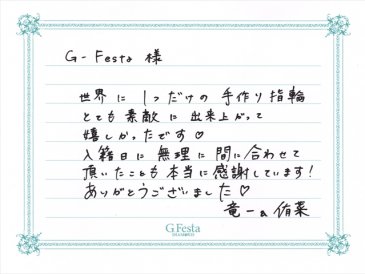 G-Festa 様
世界に1つだけの手作り指輪
とても素敵に出来上がって
嬉しかったです♡
入籍日に無理に間に合わせて
頂いたことも本当に感謝しています!
ありがとうございました♡
竜一&侑菜
G.Festa